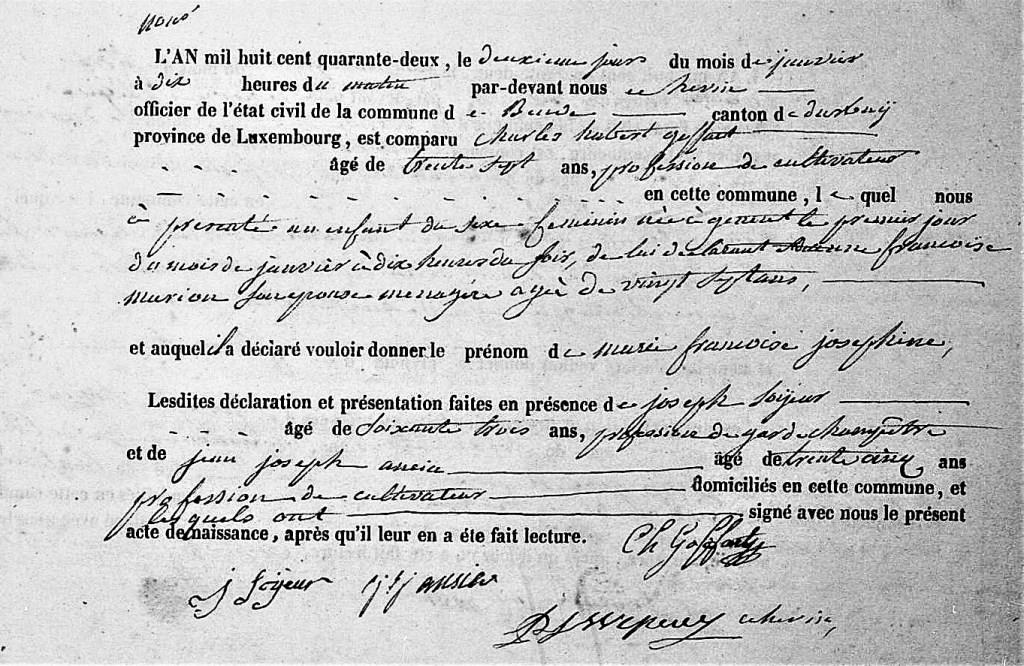 L'AN mil huit cent quarante-deux, le deuxieme jour du mois de janvier
à dix heures du matin par-devant nous echevin
officier de l'état civil de la commune de canton de durbuÿ
province de Luxembourg, est comparu Charles hubert goffart
âgé de trente sept ans, profession de cultivateur
en cette commune, le quel nous
à présenté un enfant du sexe feminin née à le premier jour
du mois de janvier à dix heures du soir, de lui declarant et francoise
marion son epouse menagère agée de vingt sept ans,
et auquel il a déclaré vouloir donner le prénom de marie francoise josephine,
Lesdites déclaration et présentation faites en présence de joseph Soÿeur
âgé de Soixante trois ans, profession de garde champêtre
et de jean joseph âgé de trente cinq ans
profession de cultivateur domiciliés en cette commune, et
les quels ont signé avec nous le présent
acte de naissance, après qu'il leur en a éte fait lecture. Ch Goffart
j Soÿeur
echevin,